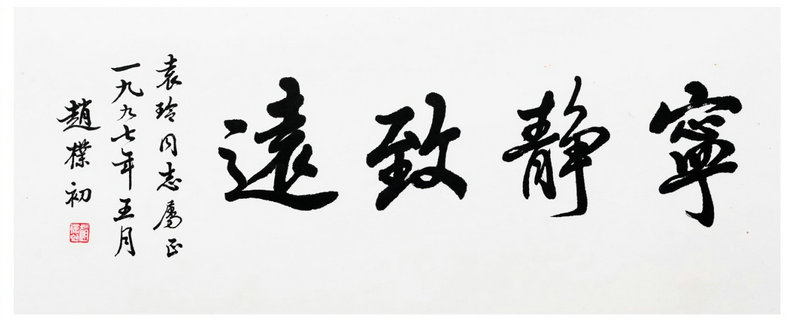 寧靜致遠
袁玲同志屬正
一九九七年五月
趙樸初